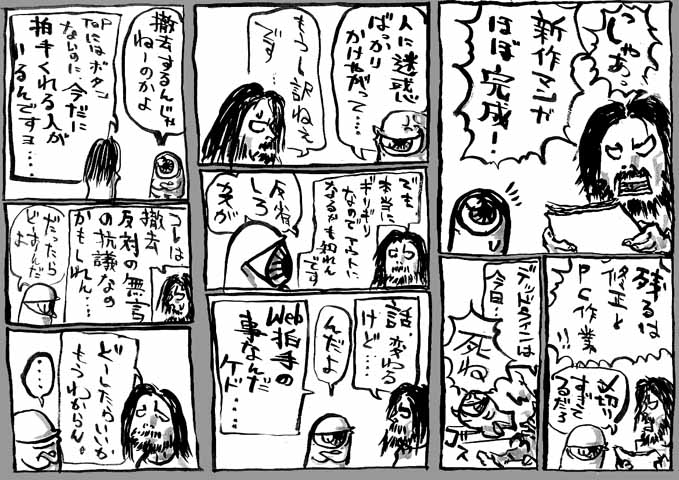 っしゃあっ
新作マンガ
ほぼ完成!
残るは
修正と
PC作業
‼
〆切り
すぎ
てるだろ
デッドラインは
今日…
死ね
ゴス
人に迷惑
ばっかり
かけやがって…
もうし訳ねえ
です…
でも
本当に
ギリギリ
なのでアウトに
なるかも知れん
です
反省
しろ
カスが
話変わる
けど…
んだよ
Web拍手の
事なんだ
ケド…
撤去するんじゃ
ねーのかよ
TOPにはボタン
ないのに、今だに
拍手くれる人が
いるんですヨ…
コレは
撤去
反対の無言
の抗議なの
かもしれん…
だったら
どーなんだ
よ
どーしたらいいか
もうわからん。
…